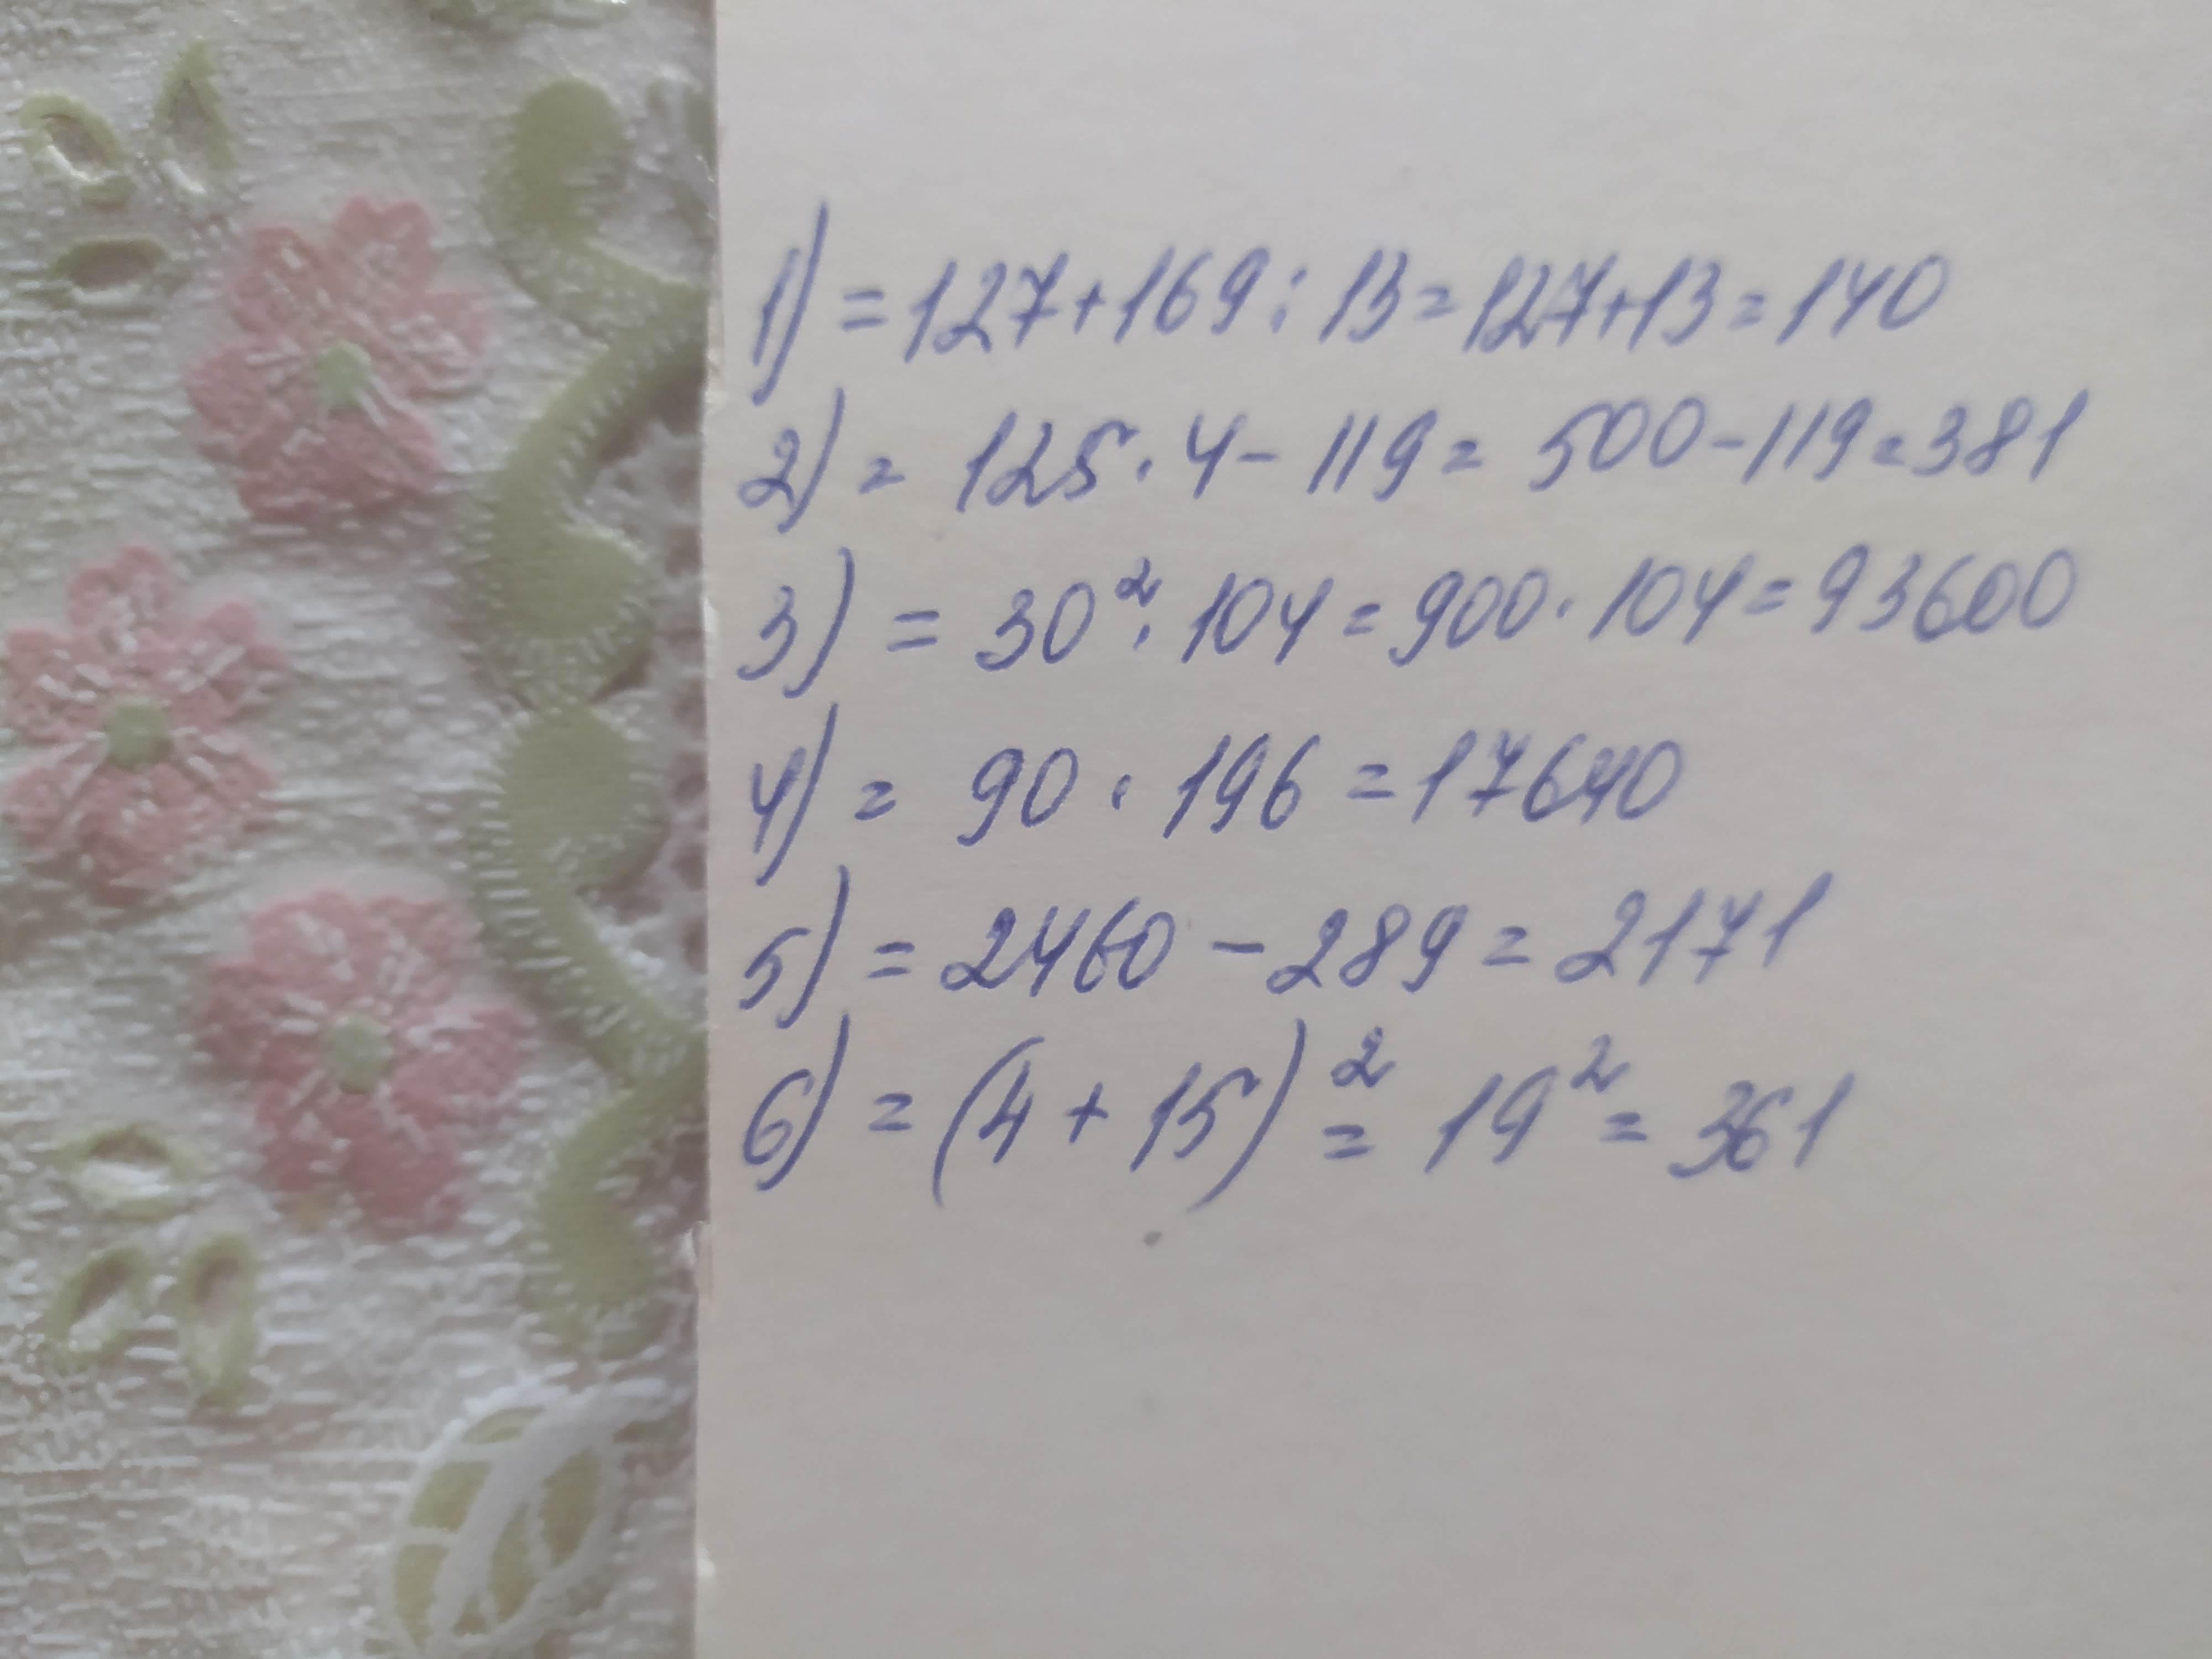 1) = 127 + 169 : 13 = 127 + 13 = 140
2) = 125 · 4 - 119 = 500 - 119 = 381
3) = 30² · 104 = 900 · 104 = 93600
4) = 90 · 196 = 17640
5) = 2460 - 289 = 2171
6) = (4 + 15)² = 19² = 361